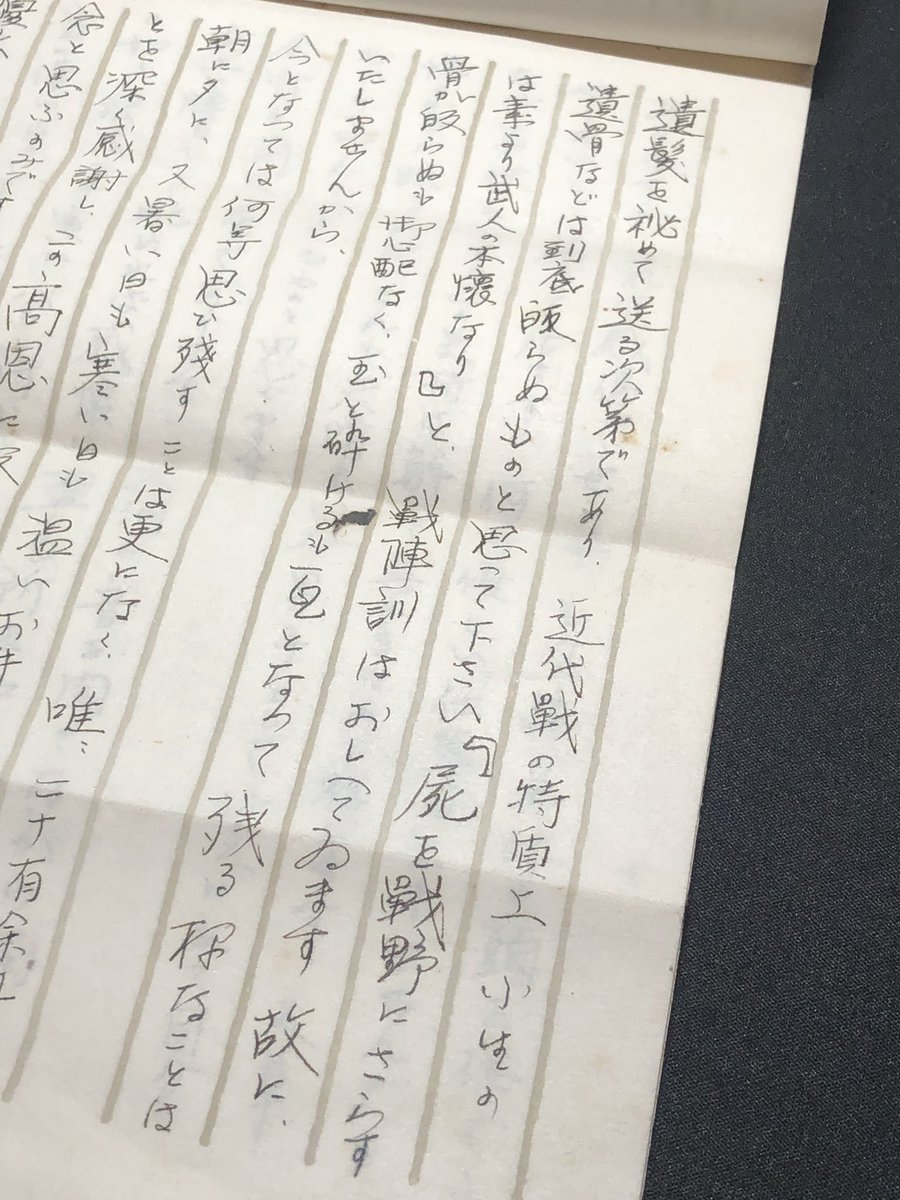 遺髪を祕めて送る次第であり、近代戦の特質上 小生の
遺骨などは到底皈らぬものと思って下さい「屍を戦野にさらす
は素より武人の本懐なり」と、戦陣訓はおしへてゐます 故に、
骨が皈らぬも御心配なく、玉と砕けるも瓦となって残る様なことは
いたしませんから、
今となっては何等思ひ残すことは更になく、唯、二十有余
朝に夕に、又暑い日も寒い日も温いお
とを深く感謝し、この高恩に
念と思ふのみです